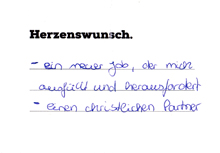 Herzenswunsch.
- ein neuer Job, der mich
ausfüllt und herausfordert
- einen christlichen Partner